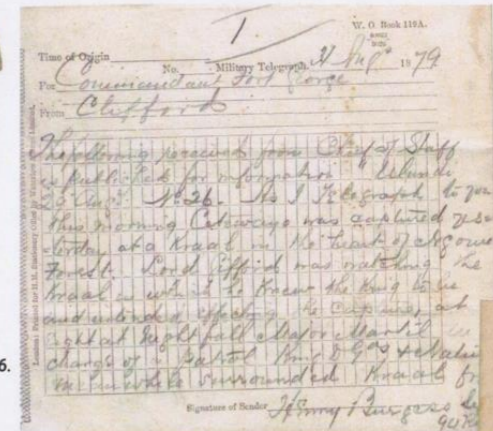 1
W. O. Book 119A.
Time of Origin
No. Military Telegraph 31 Aug 1879
For Commandant Fort George
From Clifford
The following received from Chief of Staff
is published for information "Ulundi
No. 26. As I Telegraph to you
this morning Cetewayo was captured yes-
terday at a Kraal in the heart of
Forest. Lord Gifford was watching the
Kraal in which he knew the King to be
and intended effecting the capture at
night fall Major Marter in
charge of a patrol King D Gds & Native
meanwhile surrounded Kraal
Signature of Sender Henry Burgess
6.